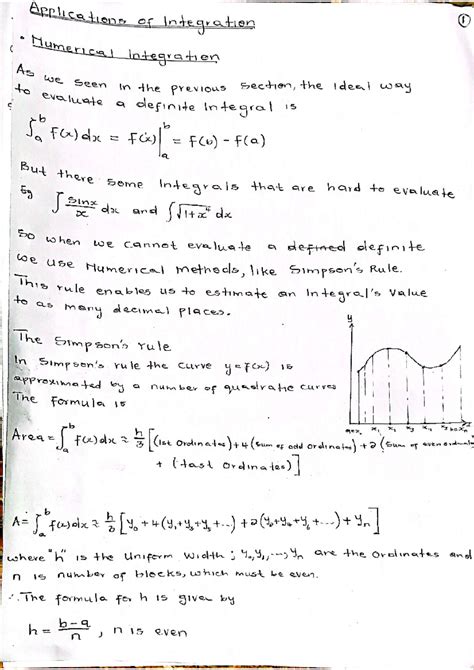 Applications of Integration
①
• Numerical integration
As we seen in the previous section, the ideal way
to evaluate a definite Integral is
∫_a^b f(x) dx = f(x)|_a^b = f(b) - f(a)
But there some Integrals that are hard to evaluate
Eg ∫ sinx/x dx and ∫√(1+x⁴) dx
So when we cannot evaluate a defined definite
we use Numerical Methods, like Simpson's Rule.
This rule enables us to estimate an Integral's Value
to as many decimal places.
The Simpson's rule
In Simpson's rule the curve y=f(x) is
approximated by a number of quadratic curves
The formula is
y
Area = ∫_a^b f(x) dx ≈ h/3 [(1st Ordinates) + 4 (sum of odd ordinates) + 2 (sum of even ordinates)
+ (last Ordinates)]
A = ∫_a^b f(x) dx ≈ h/3 [y₀ + 4(y₁+y₃+y₅+...) + 2(y₂+y₄+y₆+...) + yₙ]
where "h" is the Uniform Width; y₀, y₁, ..., yₙ are the Ordinates and
n is number of blocks, which must be even.
∴ The formula for h is given by
h = b-a/n , n is even